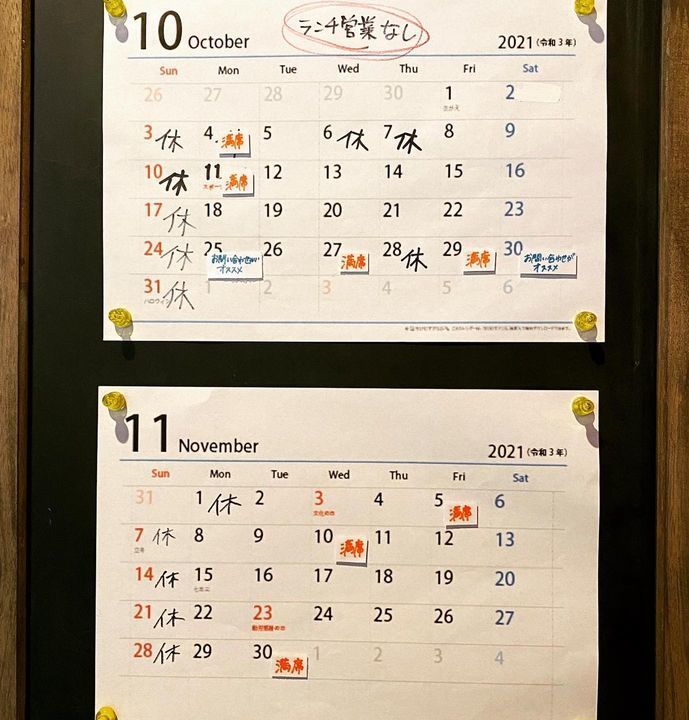 10 October
ランチ営業なし
2021 (令和3年)
Sun Mon Tue Wed Thu Fri Sat
26 27 28 29 30 1 2
3 休 4 満席 5 6 休 7 休 8 9
10 休 11 満席 12 13 14 15 16
17 休 18 19 20 21 22 23
24 休 25 お問い合わせがオススメ 26 27 満席 28 休 29 満席 30 お問い合わせがオススメ
31 休 1 2 3 4 5 6
ハロウィン
11 November
2021 (令和3年)
Sun Mon Tue Wed Thu Fri Sat
31 1 休 2 3 4 5 満席 6
文化の日
7 休 8 9 10 満席 11 12 13
立冬
14 休 15 16 17 18 19 20
七五三
21 休 22 23 24 25 26 27
勤労感謝の日
28 休 29 30 満席 1 2 3 4